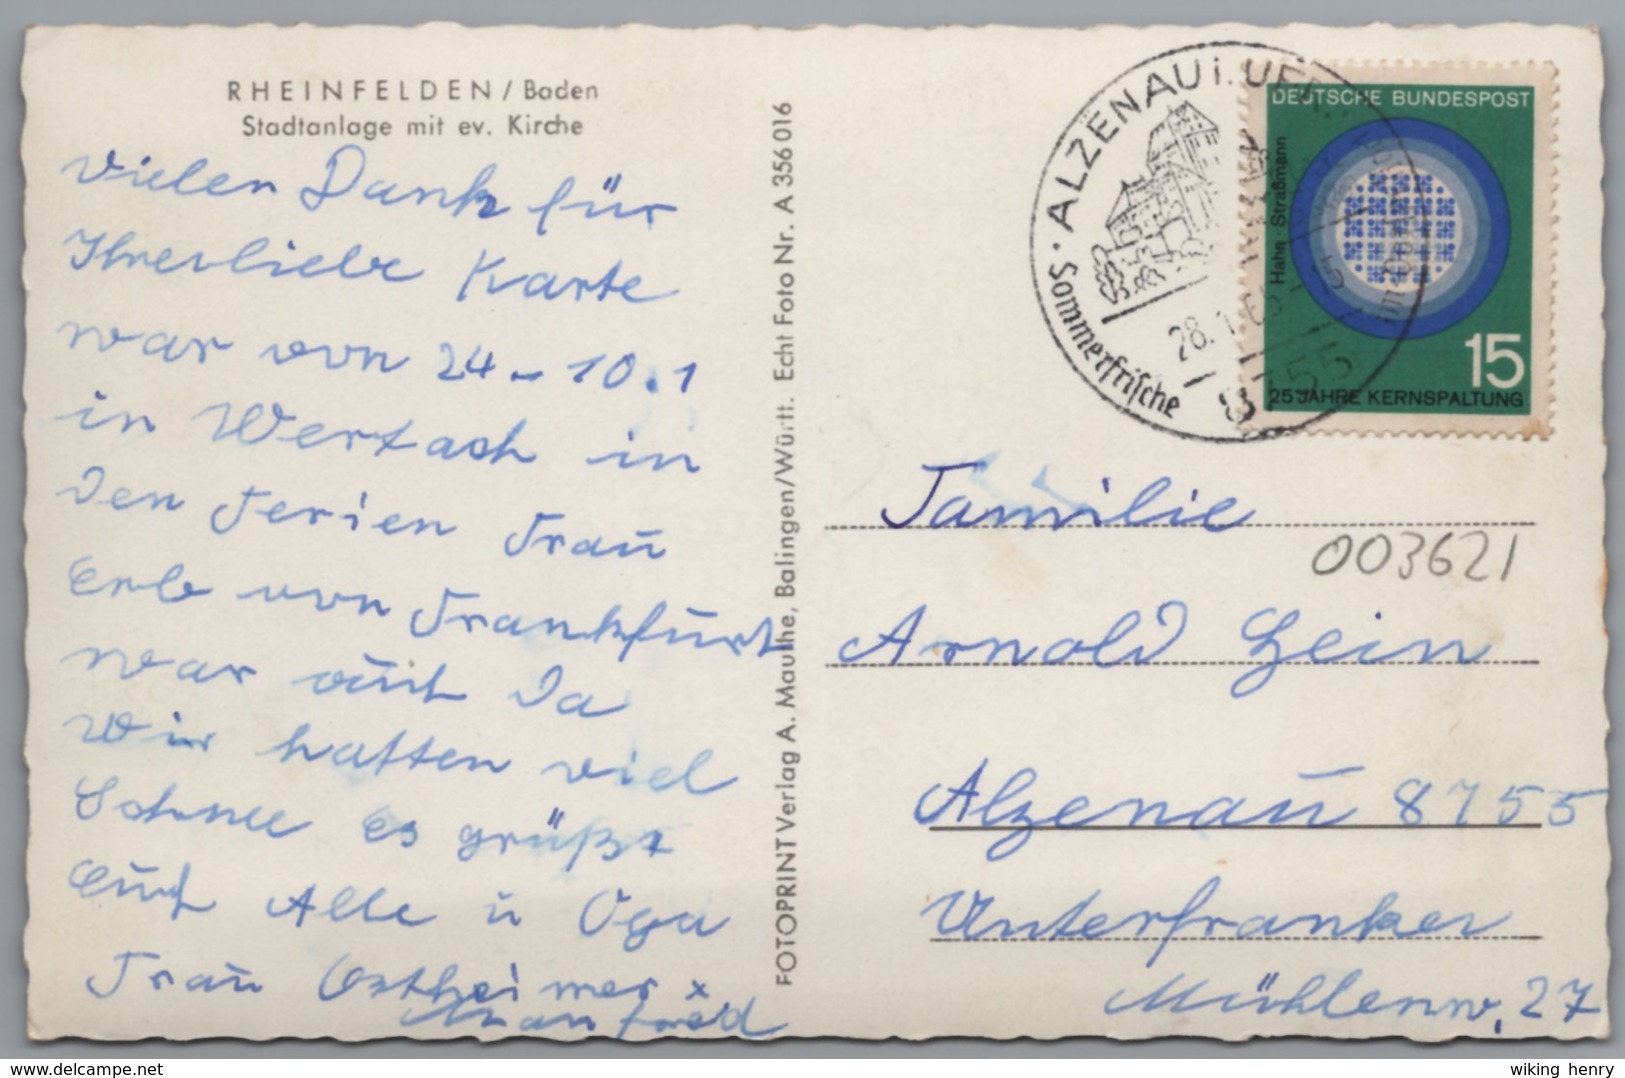 RHEINFELDEN / Baden
Stadtanlage mit ev. Kirche
vielen Dank für
Ihre liebe Karte
war von 24-10.1
in Wertach in
den Ferien Frau
Erb von Frankfurt
war auch da
Wir hatten viel
Schnee es grüßt
Euch Alle u Oga
Frau Ostheimer
Manfred
FOTOPRINT Verlag A. Mauthe, Balingen/Württ. Echt Foto Nr. A 356 016
ALZENAU i. UFR.
Sommerfrische
28.1.65
8755
DEUTSCHE BUNDESPOST
Hahn · Straßmann
15
25 JAHRE KERNSPALTUNG
Familie
003621
Arnold Hein
Alzenau 8755
Unterfranken
Mühlenw. 27
wiking henry
delcampe.net